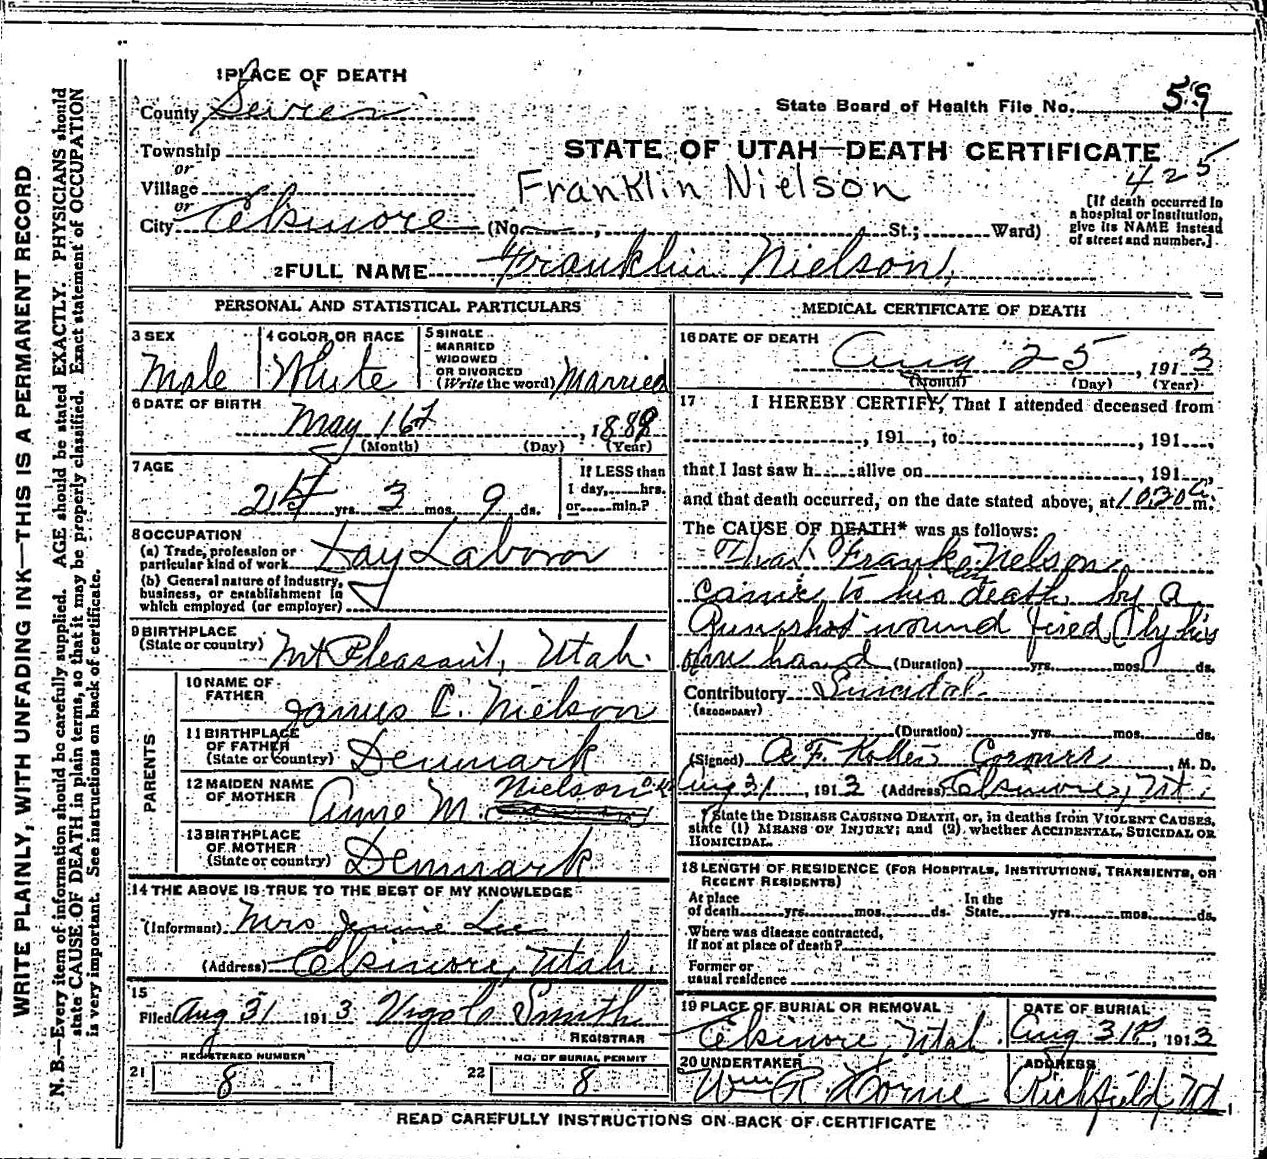 1 PLACE OF DEATH
County Sevier
State Board of Health File No. 59
Township
or
Village
or
City Elsinore
STATE OF UTAH—DEATH CERTIFICATE
425
Franklin Nielson
(No. , St.; Ward)
[If death occurred in a hospital or institution, give its NAME instead of street and number.]
2 FULL NAME Franklin Nielson
PERSONAL AND STATISTICAL PARTICULARS
3 SEX
Male
4 COLOR OR RACE
White
5 SINGLE
MARRIED
WIDOWED
OR DIVORCED
(Write the word) Married
6 DATE OF BIRTH
May 16th, 1888
(Month) (Day) (Year)
7 AGE
yrs. 3 mos. 9 ds.
If LESS than
1 day, hrs.
or min.?
8 OCCUPATION
(a) Trade, profession or
particular kind of work Day Laboror
(b) General nature of industry,
business, or establishment in
which employed (or employer)
9 BIRTHPLACE
(State or country) Mt Pleasant, Utah.
PARENTS
10 NAME OF
FATHER
James C. Nielson
11 BIRTHPLACE
OF FATHER
(State or country) Denmark
12 MAIDEN NAME
OF MOTHER Anne M. Nielson
13 BIRTHPLACE
OF MOTHER
(State or country) Denmark
14 THE ABOVE IS TRUE TO THE BEST OF MY KNOWLEDGE
(Informant) Mrs Jennie Lee
(Address) Elsinore, Utah.
15
Filed Aug 31 1913 Smith
REGISTRAR
21 REGISTERED NUMBER
8
22 NO. OF BURIAL PERMIT
8
MEDICAL CERTIFICATE OF DEATH
16 DATE OF DEATH
Aug 25, 1913
(Month) (Day) (Year)
17 I HEREBY CERTIFY, That I attended deceased from
, 191 , to , 191 ,
that I last saw h alive on , 191 ,
and that death occurred, on the date stated above, at 10.30 a m.
The CAUSE OF DEATH* was as follows:
That Frank Nelson
came to his death by a
Gunshot wound fired by his
own hand (Duration) yrs. mos. ds.
Contributory Suicidal
(SECONDARY)
(Duration) yrs. mos. ds.
(Signed) A. F. Coroner, M. D.
Aug 31, 1913 (Address) Elsinore, Ut.
* State the DISEASE CAUSING DEATH, or, in deaths from VIOLENT CAUSES,
state (1) MEANS OF INJURY; and (2) whether ACCIDENTAL, SUICIDAL OR
HOMICIDAL.
18 LENGTH OF RESIDENCE (FOR HOSPITALS, INSTITUTIONS, TRANSIENTS, OR
RECENT RESIDENTS)
At place
of death yrs. mos. ds.
In the
State yrs. mos. ds.
Where was disease contracted,
If not at place of death?
Former or
usual residence
19 PLACE OF BURIAL OR REMOVAL
Elsinore, Utah.
DATE OF BURIAL
Aug 31st, 1913
20 UNDERTAKER
Wm R Horne
ADDRESS
Richfield, Ut.
READ CAREFULLY INSTRUCTIONS ON BACK OF CERTIFICATE
WRITE PLAINLY, WITH UNFADING INK—THIS IS A PERMANENT RECORD
N. B.—Every item of information should be carefully supplied. AGE should be stated EXACTLY. PHYSICIANS should
state CAUSE OF DEATH in plain terms, so that it may be properly classified. Exact statement of OCCUPATION
is very important. See instructions on back of certificate.